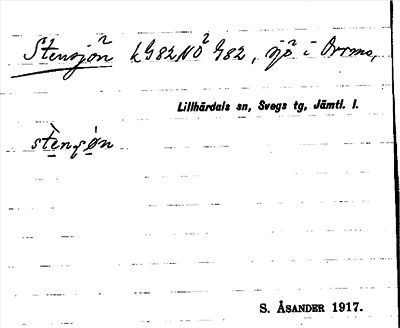 Stensjön k G82NÖ G82, sjö i Orrmo,
Lillhärdals sn, Svegs tg, Jämtl. l.
S. ÅSANDER 1917.